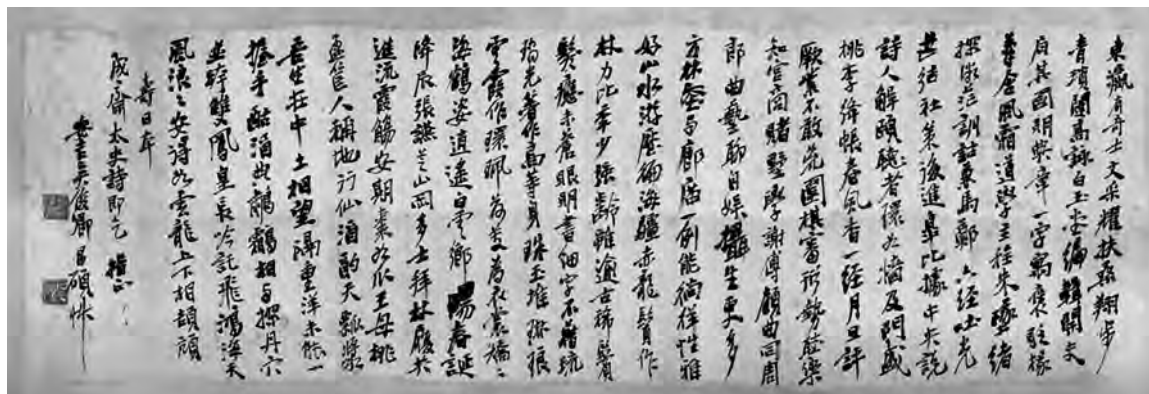 東瀛有奇士文采耀扶桑翔步
青瑣闥高詠白玉堂編輯開史
局其國朝典章一字寓褒貶緣
筆含風霜道學主程朱墜緒
探微茫訓詁業馬鄭六經吐光
芒結社策後進皋比據中央說
詩人解頤聽者環如牆及門盛
桃李絳帳春風香一經月旦評
厥業不敢荒圍棋審形勢音樂
知宮商賭墅學謝傅顧曲同周
郎曲藝聊自娛攝生更多
方林壑與廊廟一例能徜徉性雅
好山水游歷徧海疆赤龍鬚作
杖力比年少強齡雖逾古稀鬢
髮應未蒼眼明書細字不藉琉
璃光著作高等身珠玉堆琳琅
雲霞作環珮荷芰為衣裳矯矯
海鶴姿逍遙白雲鄉陽春誕
降辰張讌芝山岡多士拜杖履於
進流霞觴安期棗如瓜王母桃
盈筐人稱地行仙酒酌天瓢漿
吾生在中土相望隔重洋未能一
握手酣酒典鷫鸘相与探丹穴
並轡雙鳳皇長吟託飛鴻海天
風浪浪安得如雲龍上下相頡頏
壽日本
成齋太史詩即乞 撰正
安吉吳俊卿昌碩作